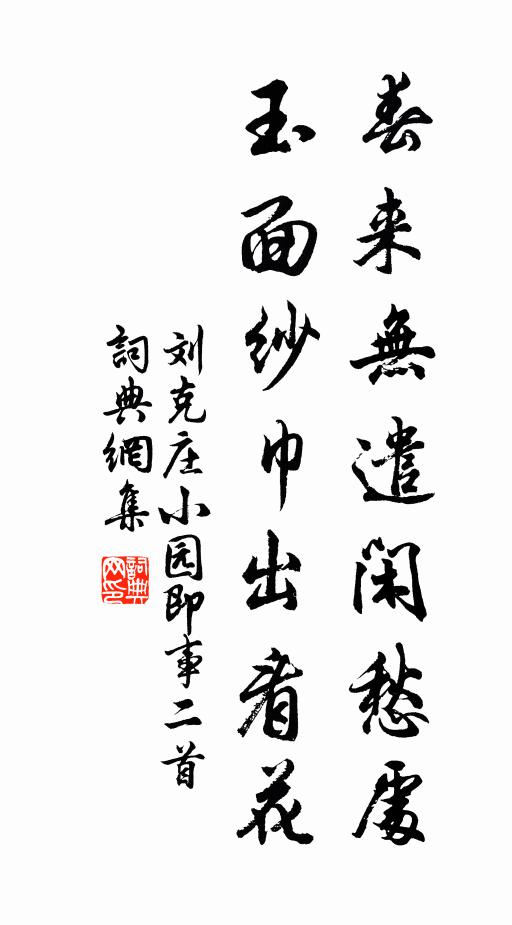 春来無遣闲愁處
玉面纱巾出看花
刘克庄小园即事二首
詞典網集
詞典网印